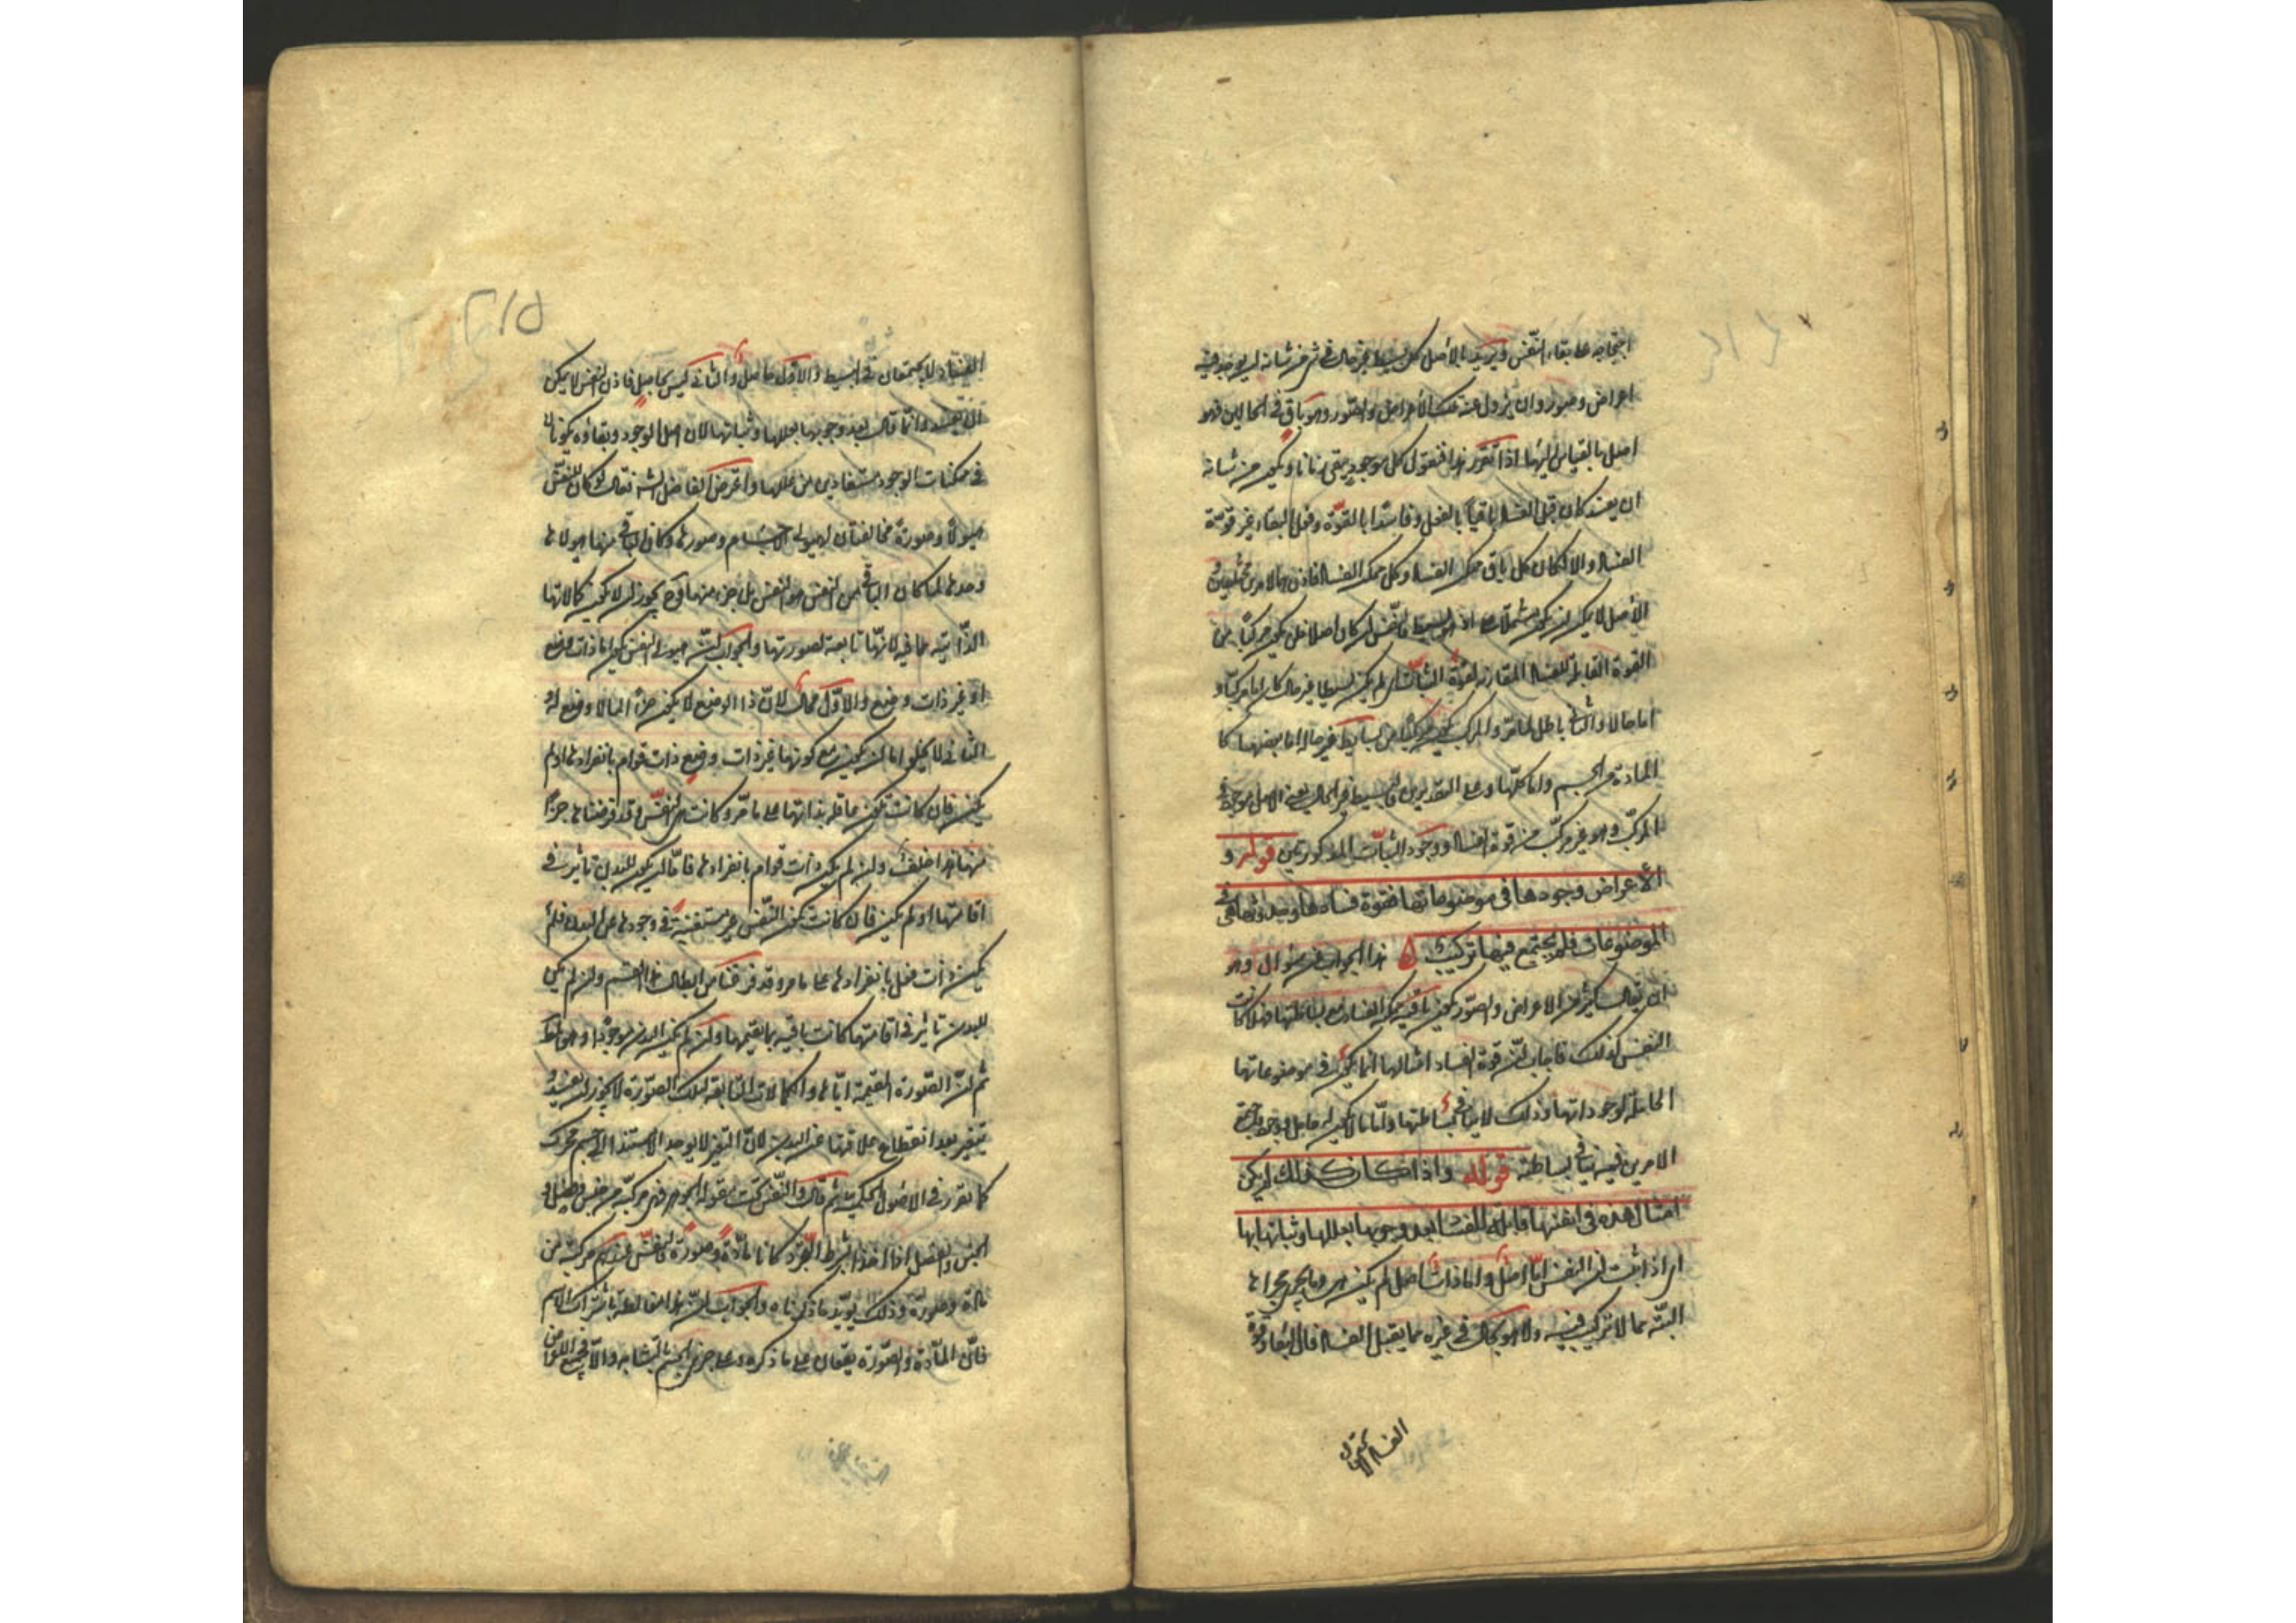 احتجاجه على بقاء النفس ويريد بالأصل كل بسيط غير حال في شيء من شأنه ان يوجد فيه
اعراض وصور وان يزول عنه تلك الأعراض والصور وهو باق في الحالين فهو
اصل بالقياس اليها اذا تقرر هذا فنقول كل موجود يبقى زمانا ويكون من شأنه
ان يفسد كان قبل الفساد باقياً بالفعل وفاسدا بالقوة وفعل البقاء غير قوة
الفساد والا لكان كل باق ممكن الفساد وكل ممكن الفساد باقيا فاذن هما لامرين مختلفين
الأصل لا يمكن ان يكون مشتملا على اذ هو بسيط فالنفس ان كان اصلا فلن يكون مركبا من
القوة القابلة للفساد المقارنة لقوة الثبات وان لم يكن بسيطا غير حال كان اما مركبا و
اما حالا والثاني باطل لما مر والمركب يكون مركبا من بسايط غير حالة اما بعضها كا
المادة من الجسم واما كلها وعلى التقديرين فالبسيط غير الحال يعني الاصل موجود في
المركب وهو غير مركب من قوة الفساد ووجود الثبات المذكورين قوله و
الأعراض وجودها في موضوعاتها فقوة فسادها وحدوثها هي في
الموضوعات فلم يجتمع فيها تركيب ۵ هذا الجواب عن سؤال وهو
ان يقال كثير من الاعراض والصور يكون باقية ممكنة الفساد مع بساطتها فهلا كانت
النفس كذلك فاجاب بان قوة فساد امثالها انما يكون في موضوعاتها
الحاملة لوجوداتها وذلك لا ينافي بساطتها واما ما لا يكون له حامل فوجود اجتماع
الامرين فيه ينافي بساطته قوله واذا كان كذلك لم يكن
امثال هذه في انفسها قابلة للفساد بعد وجوبها بعللها وثباتها بها
اي اذا ثبت ان النفس اما اصل واما ذات اصل لم يكن هي وما يجري مجراها
البتة مما لا تركيب فيه ولا هو بحال في غيره مما يقبل الفساد فان البقاء وقوة
الفساد لا يجتمعان
۲۱۵
الفساد لا يجتمعان في البسيط والاول حاصل والثاني ليس بحاصل فاذن النفس لا يمكن
ان تفسد وانما قال بعد وجوبها بعللها وثباتها لان اصل الوجود وبقاؤه يكونان
في ممكنات الوجود مستفادين من عللها واعترض الفاضل الشارح فقال لو كان للنفس
هيولى وصورة مخالفتان لهيولى الاجسام وصورها وكان الباقي منها هيولاها
وحدها لما كان الباقي من النفس هو النفس بل جزء منها وح يجوز ان لا يكون كمالاتها
الذاتية باقية لانها تابعة لصورتها والجواب ان هيولى النفس يكون اما ذات وضع
او غير ذات وضع والاول محال لان ذا الوضع لا يكون جزءا لما لا وضع له
الثاني لا يخلو اما ان يكون مع كونها غير ذات وضع ذات قوام بانفرادها او لم
يكن فان كانت يكون عاقلة بذاتها على ما مر وكانت هي النفس وقد فرضناها جزءا
منها هذا خلف وان لم يكن ذات قوام بانفرادها فاما ان يكون للبدن تاثير في
اقامتها او لم يكن فان كانت يكون النفس غير مستغنية في وجودها عن البدن فلم
يكن ذات فعل بانفرادها على ما مر وقد فرغنا من ابطال هذا القسم وان لم يكن
للبدن تاثير في اقامتها كانت باقية بما يقيمها وان لم يكن البدن موجودا وهو المط
ثم ان الصورة المقيمة اياها والكمالات التابعة لتلك الصورة لا يجوز ان يفسد و
يتغير بعد انقطاع علاقتها عن البدن لان التغير لا يوجد الا مستندا الى جسم متحرك
كما تقرر في الاصول الحكمية ثم قال والنفس تحت مقولة الجوهر فهي مركبة من جنس وفصل و
الجنس والفصل اذا اخذا بشرط التجرد كانا مادة وصورة فالنفس عندهم مركبة من
مادة وصورة وذلك يؤيد ما ذكرناه والجواب ان هذا مغالطة باشتراك الاسم
فان المادة والصورة يقعان على ما ذكره وعلى جزئي الجسم بالتشابه والا فجميع